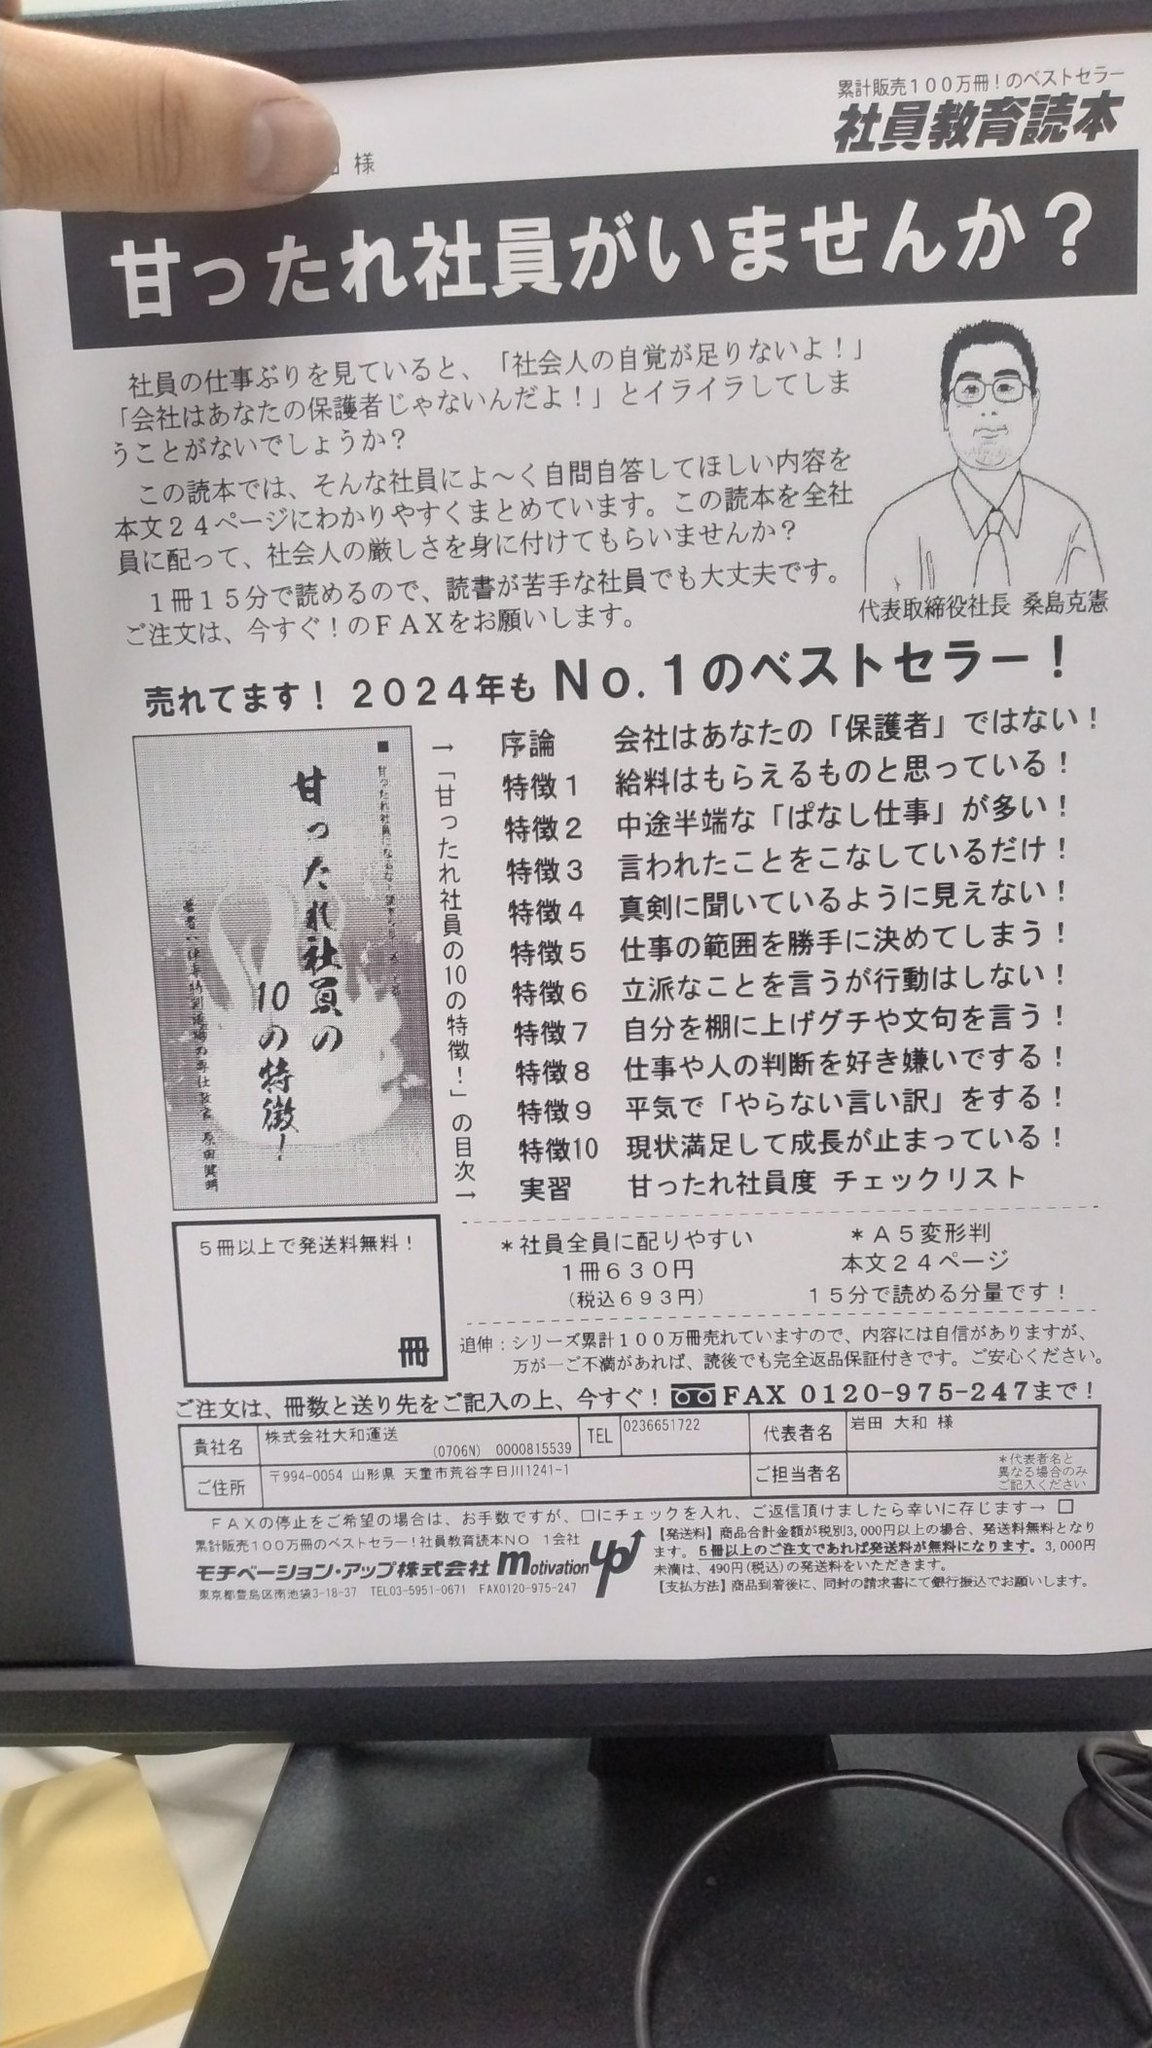 様
累計販売100万冊!のベストセラー
社員教育読本
甘ったれ社員がいませんか?
社員の仕事ぶりを見ていると、「社会人の自覚が足りないよ!」
「会社はあなたの保護者じゃないんだよ!」とイライラしてしま
うことがないでしょうか?
この読本では、そんな社員によ〜く自問自答してほしい内容を
本文24ページにわかりやすくまとめています。この読本を全社
員に配って、社会人の厳しさを身に付けてもらいませんか?
1冊15分で読めるので、読書が苦手な社員でも大丈夫です。
ご注文は、今すぐ!のFAXをお願いします。
代表取締役社長 桑島克憲
売れてます! 2024年も No.1のベストセラー!
■甘ったれ社員に
甘ったれ社員の
10の特徴!
原田健朗
→「甘ったれ社員の10の特徴!」の目次→
序論 会社はあなたの「保護者」ではない!
特徴1 給料はもらえるものと思っている!
特徴2 中途半端な「ぱなし仕事」が多い!
特徴3 言われたことをこなしているだけ!
特徴4 真剣に聞いているように見えない!
特徴5 仕事の範囲を勝手に決めてしまう!
特徴6 立派なことを言うが行動はしない!
特徴7 自分を棚に上げグチや文句を言う!
特徴8 仕事や人の判断を好き嫌いでする!
特徴9 平気で「やらない言い訳」をする!
特徴10 現状満足して成長が止まっている!
実習 甘ったれ社員度 チェックリスト
5冊以上で発送料無料!
冊
*社員全員に配りやすい
1冊630円
(税込693円)
*A5変形判
本文24ページ
15分で読める分量です!
追伸:シリーズ累計100万冊売れていますので、内容には自信がありますが、
万が一ご不満があれば、読後でも完全返品保証付きです。ご安心ください。
ご注文は、冊数と送り先をご記入の上、今すぐ! FAX 0120-975-247まで!
貴社名 株式会社大和運送 (0706N) 0000815539 TEL 0236651722 代表者名 岩田 大和 様
ご住所 〒994-0054 山形県 天童市荒谷字日川1241-1 ご担当者名 *代表者名と
異なる場合のみ
ご記入ください
FAXの停止をご希望の場合は、お手数ですが、□にチェックを入れ、ご返信頂けましたら幸いに存じます→ □
累計販売100万冊のベストセラー!社員教育読本NO 1会社
モチベーション・アップ株式会社 motivation up
東京都豊島区南池袋3-18-37 TEL03-5951-0671 FAX0120-975-247
【発送料】商品合計金額が税別3,000円以上の場合、発送料無料となり
ます。5冊以上のご注文であれば発送料が無料になります。3,000円
未満は、490円(税込)の発送料をいただきます。
【支払方法】商品到着後に、同封の請求書にて銀行振込でお願いします。